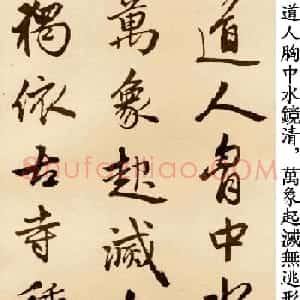 道人胸中水鏡清，萬象起滅無逃形
道人胷中水
萬象起滅
獨依古寺種
Shufazidiao.com